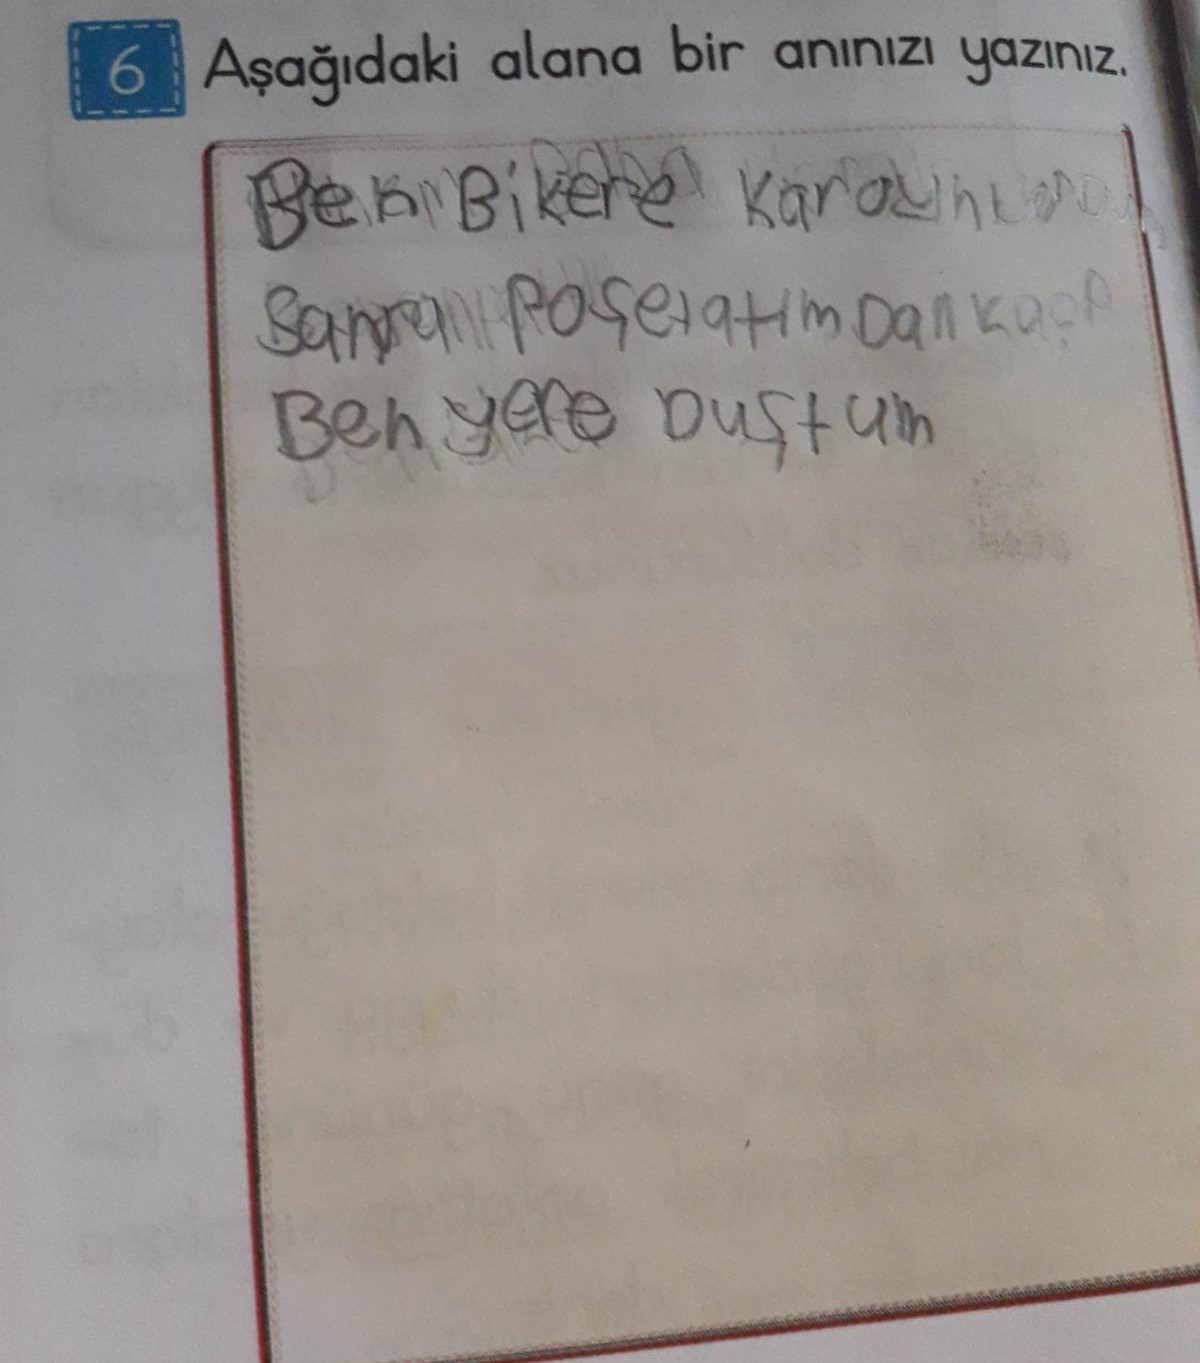 6 Aşağıdaki alana bir anınızı yazınız.
Ben Bikere
Poşet atım Dan kaçp
Ben yere Duştum